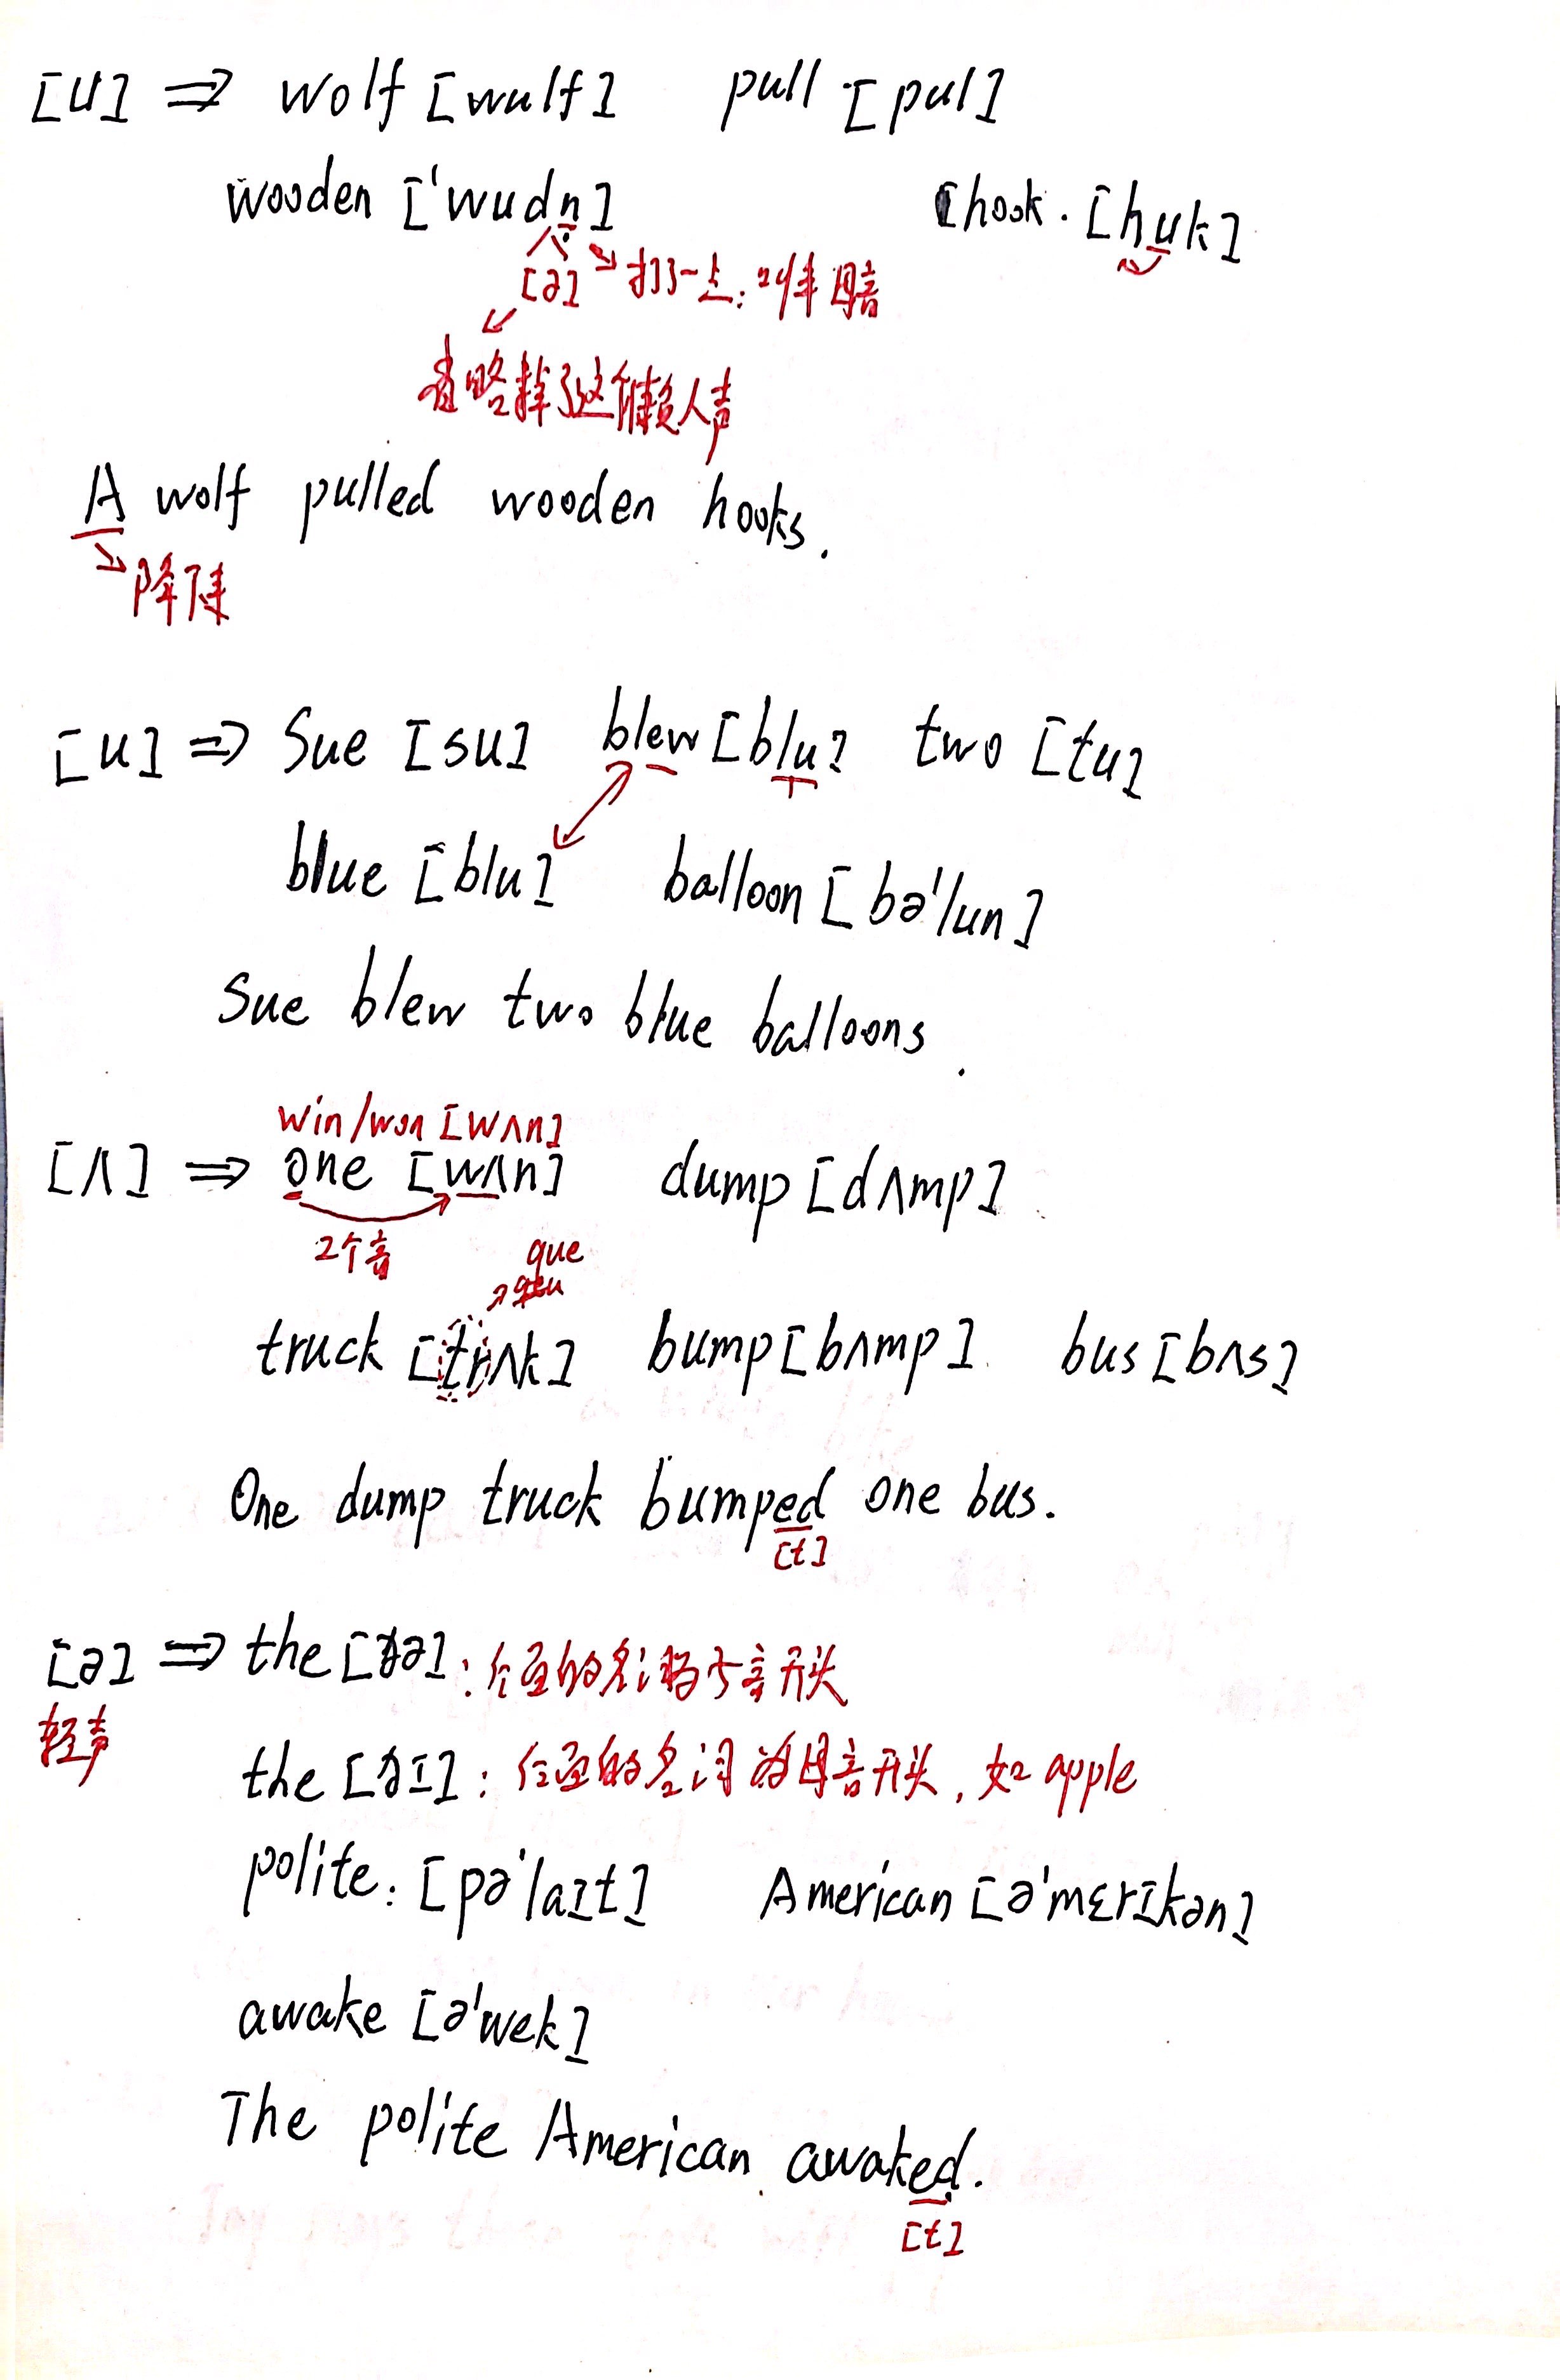 [u] ⇒ wolf [wulf] pull [pul]
wooden ['wudn̩] hook. [huk]
[ə] ↘ 打一点:叫半母音
省略掉了这个懒人声
A wolf pulled wooden hooks.
↘ 降下来
[u] ⇒ Sue [su] blew [blu] two [tu]
blue [blu] balloon [bə'lun]
Sue blew two blue balloons.
win/won [wʌn]
[ʌ] ⇒ one [wʌn] dump [dʌmp]
2个音 que
truck [trʌk] bump [bʌmp] bus [bʌs]
One dump truck bumped one bus.
[t]
[ə] ⇒ the [ðə]: 后面的名词 子音开头
轻声
the [ðɪ]: 后面的名词 母音开头, 如 apple
polite: [pə'laɪt] American [ə'mɛrɪkən]
awake [ə'wek]
The polite American awaked.
[t]